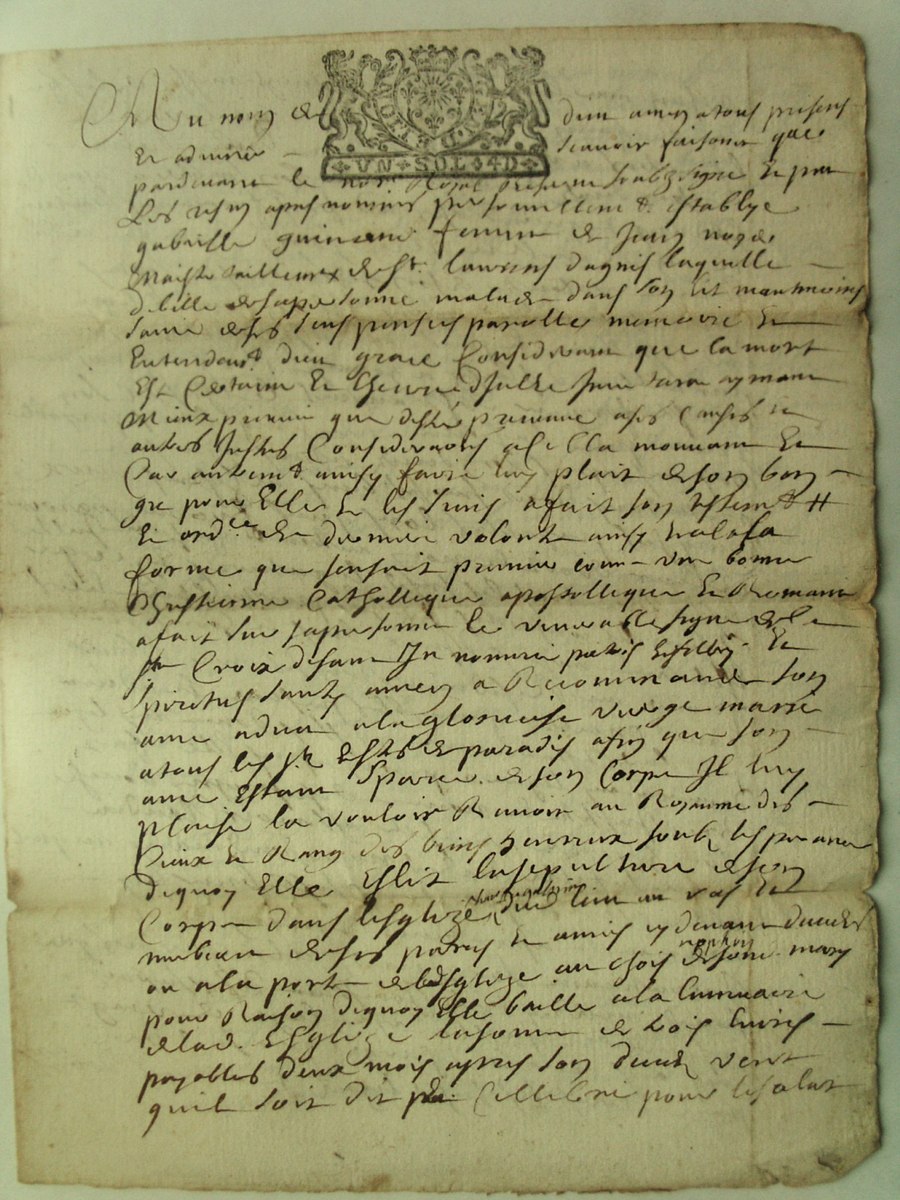 Au nom de dieu amen a tous presens
et advenir scavoir faisons que
pardevant le not.re Royal soubzsigne et p.nt
Les tesm apres nommes establye
gabrielle femme de Jean
maistre tailleur de St. laurens laquelle
debille de sa personne malade dans son lit neantmoins
saine de ses sens parolle memoire et
Entendem.t dieu grace Considerant que la mort
Est Certaine et Lheure dicelle
Mieux prevenir que destre prevenue
autres justes Considerations a Cella mouvant et
Car autrem.t ainsy faire luy plait de son bon
gre pour Elle et les siens a fait son testem.t #
et ord.ce de derniere volonte ainsy
forme que sensuit premier com- une bonne
Chrestienne Catholicque apostollicque et Romaine
a fait sur sa personne le venerable signe de la
ste Croix disant In nomine patris et filly et
spiritus santy amen a Recommande son
ame a dieu a la glorieuse vierge marie
a tous les sts et stes de paradis afin que son
ame Estant separee de son Corps Il luy
plaise la vouloir Recevoir au Royaume des
Cieux et Rang des biens heureux
dequoy Elle Eslit la sepulture de son
Corps dans lesglize dud lieu au vas et
tumbeau de ses parens et amis
ou a la porte de lad Esglize au chois de son mary
pour Raison dequoy Elle baille a la luminaire
de lad. Esglize la somme de trois livres
payables deux mois apres son decez veut
quil soit dit Cellebre pour le salut
VN·SOL·4D·